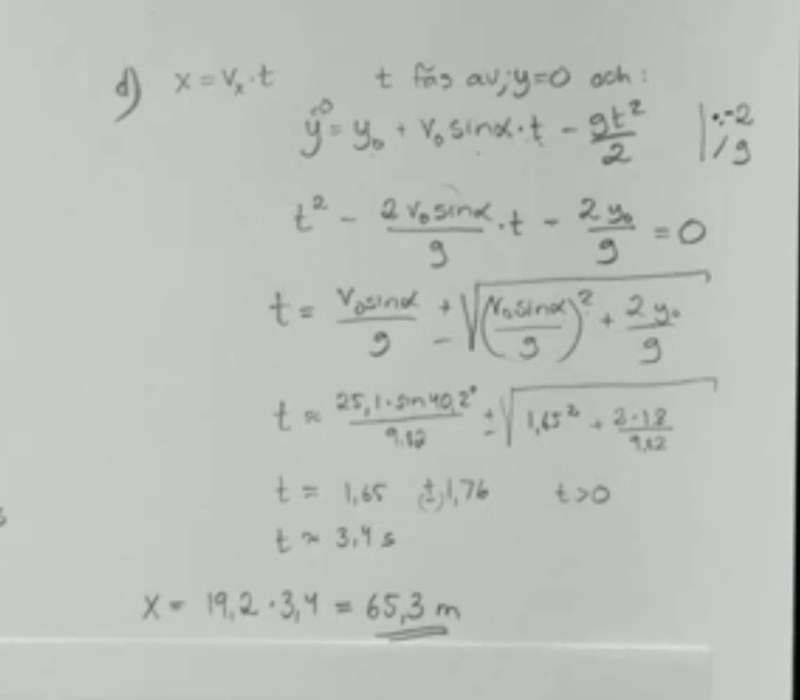 d) x = vₓ · t t fås av; y=0 och:
y⁰ = y₀ + v₀ sinα · t - gt²/2 | ·-2 /g
t² - 2v₀sinα/g · t - 2y₀/g = 0
t = v₀sinα/g ± √((v₀sinα/g)² + 2y₀/g)
t ≈ 25,1·sin40,2°/9,82 ± √(1,65² + 2·1,8/9,82)
t = 1,65 (±) 1,76 t>0
t ≈ 3,4 s
x = 19,2 · 3,4 = 65,3 m